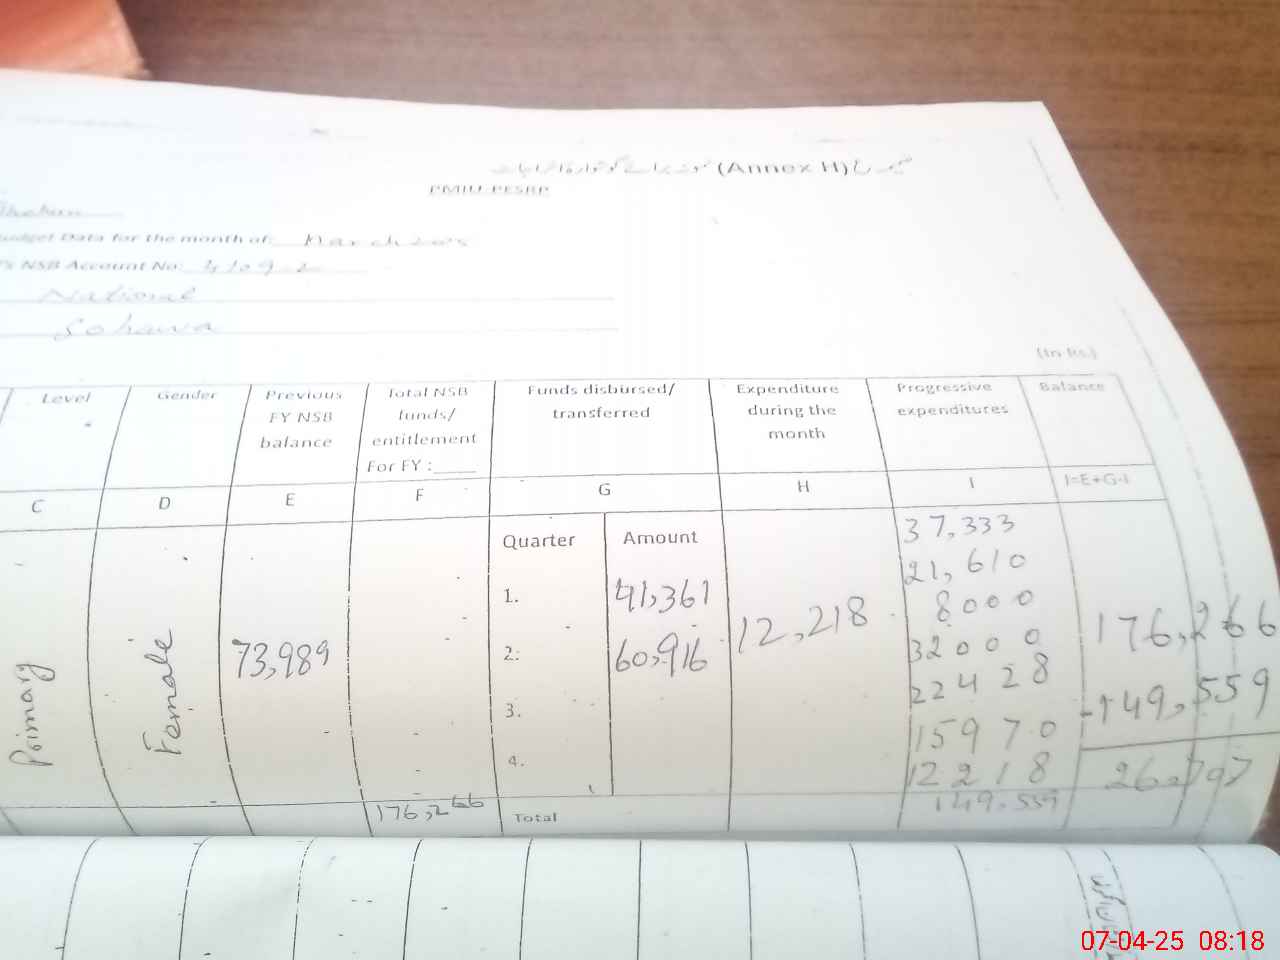 (Annex H)
PMIU-PESRP
Budget Data for the month of: March 2025
's NSB Account No: 4109-2
National
Sohawa
(In Rs.)
Level Gender Previous FY NSB balance Total NSB funds/ entitlement For FY :____ Funds disbursed/ transferred Expenditure during the month Progressive expenditures Balance
C D E F G H I I=E+G-I
Quarter Amount
Primary Female 73,989
1. 41,361
2: 60,916
3.
4.
12,218
37,333
21,610
8000
32000
22428
15970
12218
149,559
176,266
-149,559
26,707
176,266
Total
07-04-25 08:18